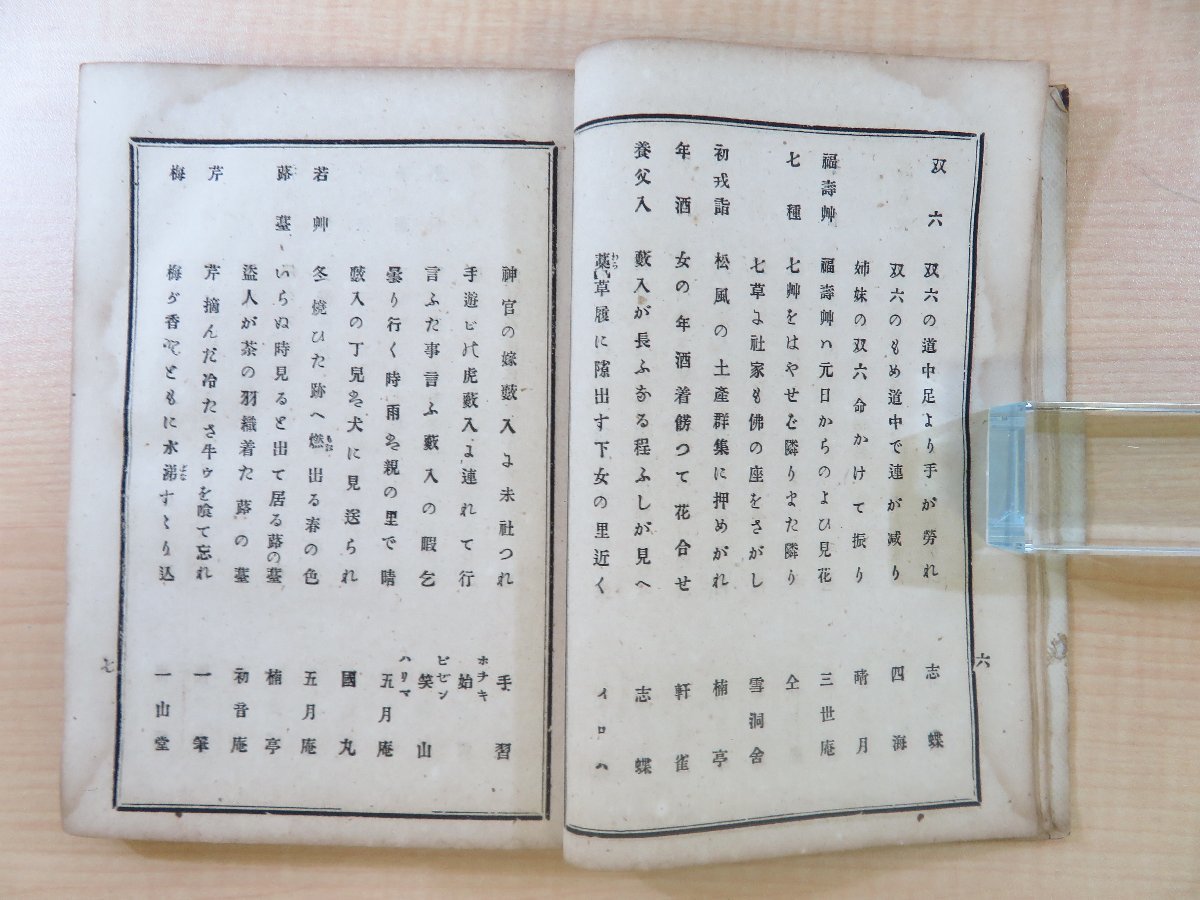 双六 双六の道中足より手が勞れ 志蝶
双六のもめ道中で連が减り 四海
姉妹の双六命かけて振り 晴月
福壽艸 福壽艸ハ元日からのよひ見花 三世庵
七種 七艸をはやせば隣りまた隣り 仝
七草よ社家も佛の座をさがし 雪洞舍
初戎詣 松風の土產群集に押めがれ 楠亭
年酒 女の年酒着餝つて花合せ 軒雀
養父入 藪入が長ふなる程ふしが見へ 志蝶
藁草履に隙出す下女の里近く イロハ
六
神官の嫁藪入よ末社つれ 手習
手遊びの虎藪入よ連れて行 ホチキ 始
言ふた事言ふ藪入の暇乞 ビゼン 笑山
曇り行く時雨も親の里で晴 ハリマ 五月庵
藪入の丁兒も犬に見送られ 國丸
若艸 冬燒ひた跡へ燃出る春の色 五月庵
蕗薹 いらぬ時見ると出て居る蕗の薹 楠亭
盜人が茶の羽織着た蕗の薹 初音庵
芹 芹摘んだ冷たさ牛ゥを喰て忘れ 一筆
梅 梅が香をともに水洟すゝり込 一山堂
七